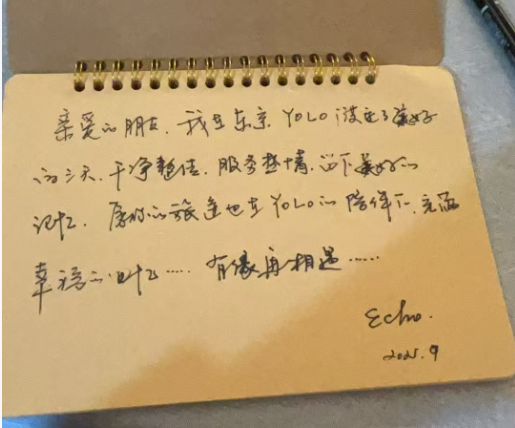 亲爱的朋友,我在东京YOLO渡过了美好
的三天,干净整洁,服务热情,留下美好的
记忆,愿你的旅途也在YOLO的陪伴下,充满
幸福的记忆……有缘再相遇……
Echo.
2025.9